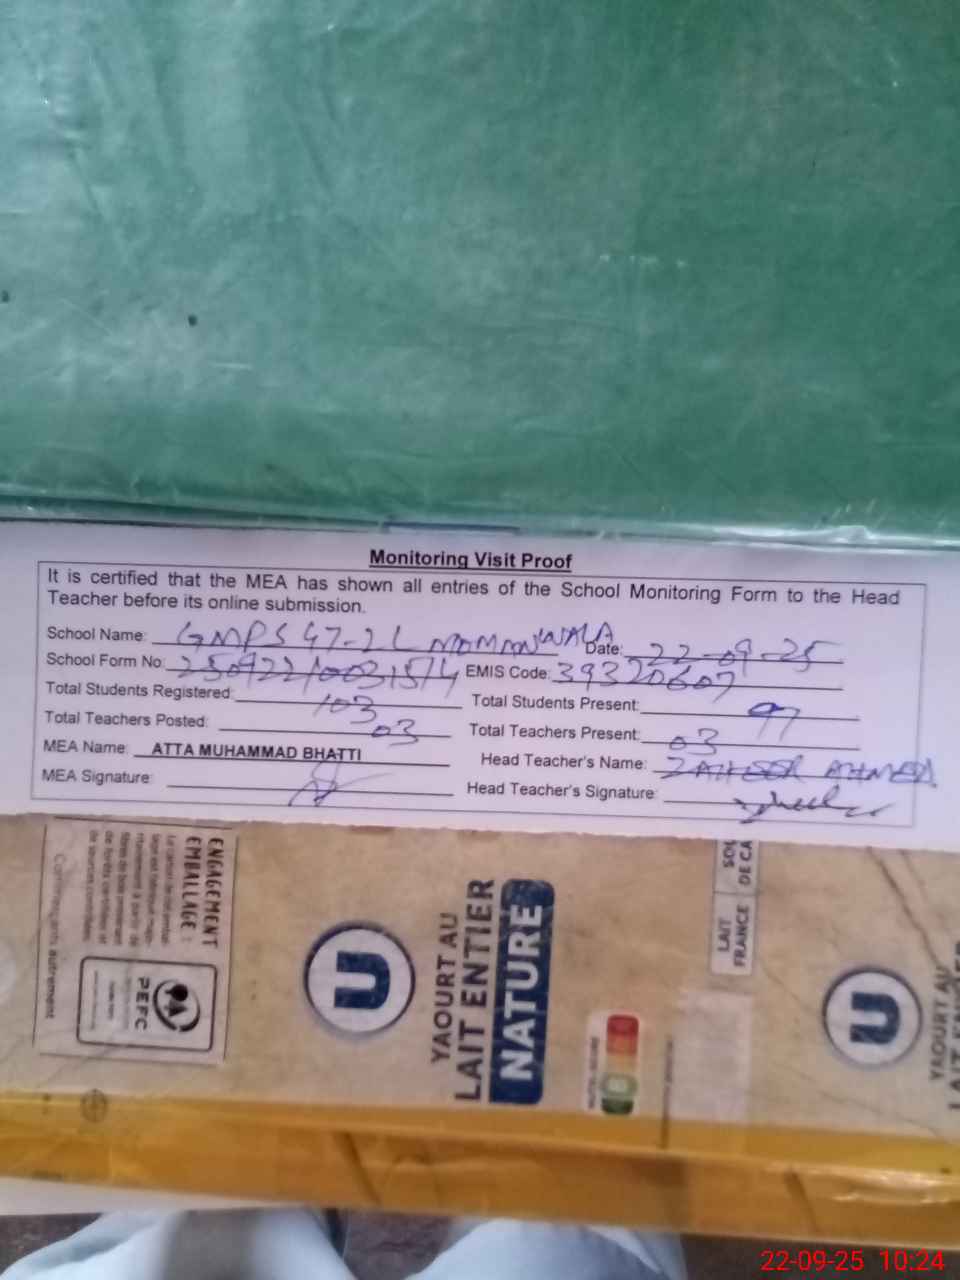 Monitoring Visit Proof
It is certified that the MEA has shown all entries of the School Monitoring Form to the Head
Teacher before its online submission.
School Name: GMPS 47-2L MOMANWALA Date: 22-09-25
School Form No: 250922/003151/4 EMIS Code: 39320607
Total Students Registered: 103 Total Students Present: 97
Total Teachers Posted: 03 Total Teachers Present: 03
MEA Name: ATTA MUHAMMAD BHATTI Head Teacher's Name: ZAHEER AHMED
MEA Signature: Head Teacher's Signature:
ENGAGEMENT
EMBALLAGE :
Commerçants autrement
PEFC
U
YAOURT AU
LAIT ENTIER
NATURE
LAIT
FRANCE
DE CA
U
YAOURT AU
22-09-25 10:24